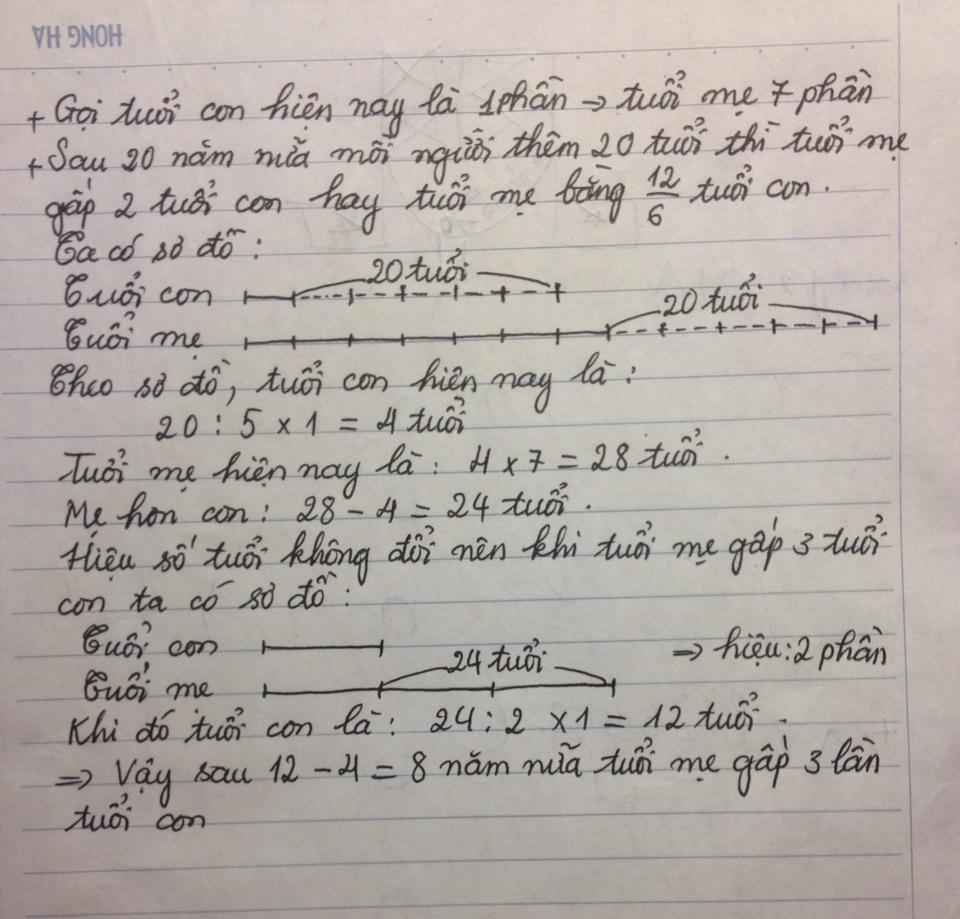 HONG HA
+ Gọi tuổi con hiện nay là 1 phần → tuổi mẹ 7 phần
+ Sau 20 năm nữa mỗi người thêm 20 tuổi thì tuổi mẹ
gấp 2 tuổi con hay tuổi mẹ bằng 12/6 tuổi con.
Ta có sơ đồ:
20 tuổi
Tuổi con
20 tuổi
Tuổi mẹ
Theo sơ đồ, tuổi con hiện nay là:
20 : 5 x 1 = 4 tuổi
Tuổi mẹ hiện nay là: 4 x 7 = 28 tuổi.
Mẹ hơn con: 28 - 4 = 24 tuổi.
Hiệu số tuổi không đổi nên khi tuổi mẹ gấp 3 tuổi
con ta có sơ đồ:
Tuổi con ⇒ hiệu: 2 phần
24 tuổi
Tuổi mẹ
Khi đó tuổi con là: 24 : 2 x 1 = 12 tuổi.
⇒ Vậy sau 12 - 4 = 8 năm nữa tuổi mẹ gấp 3 lần
tuổi con